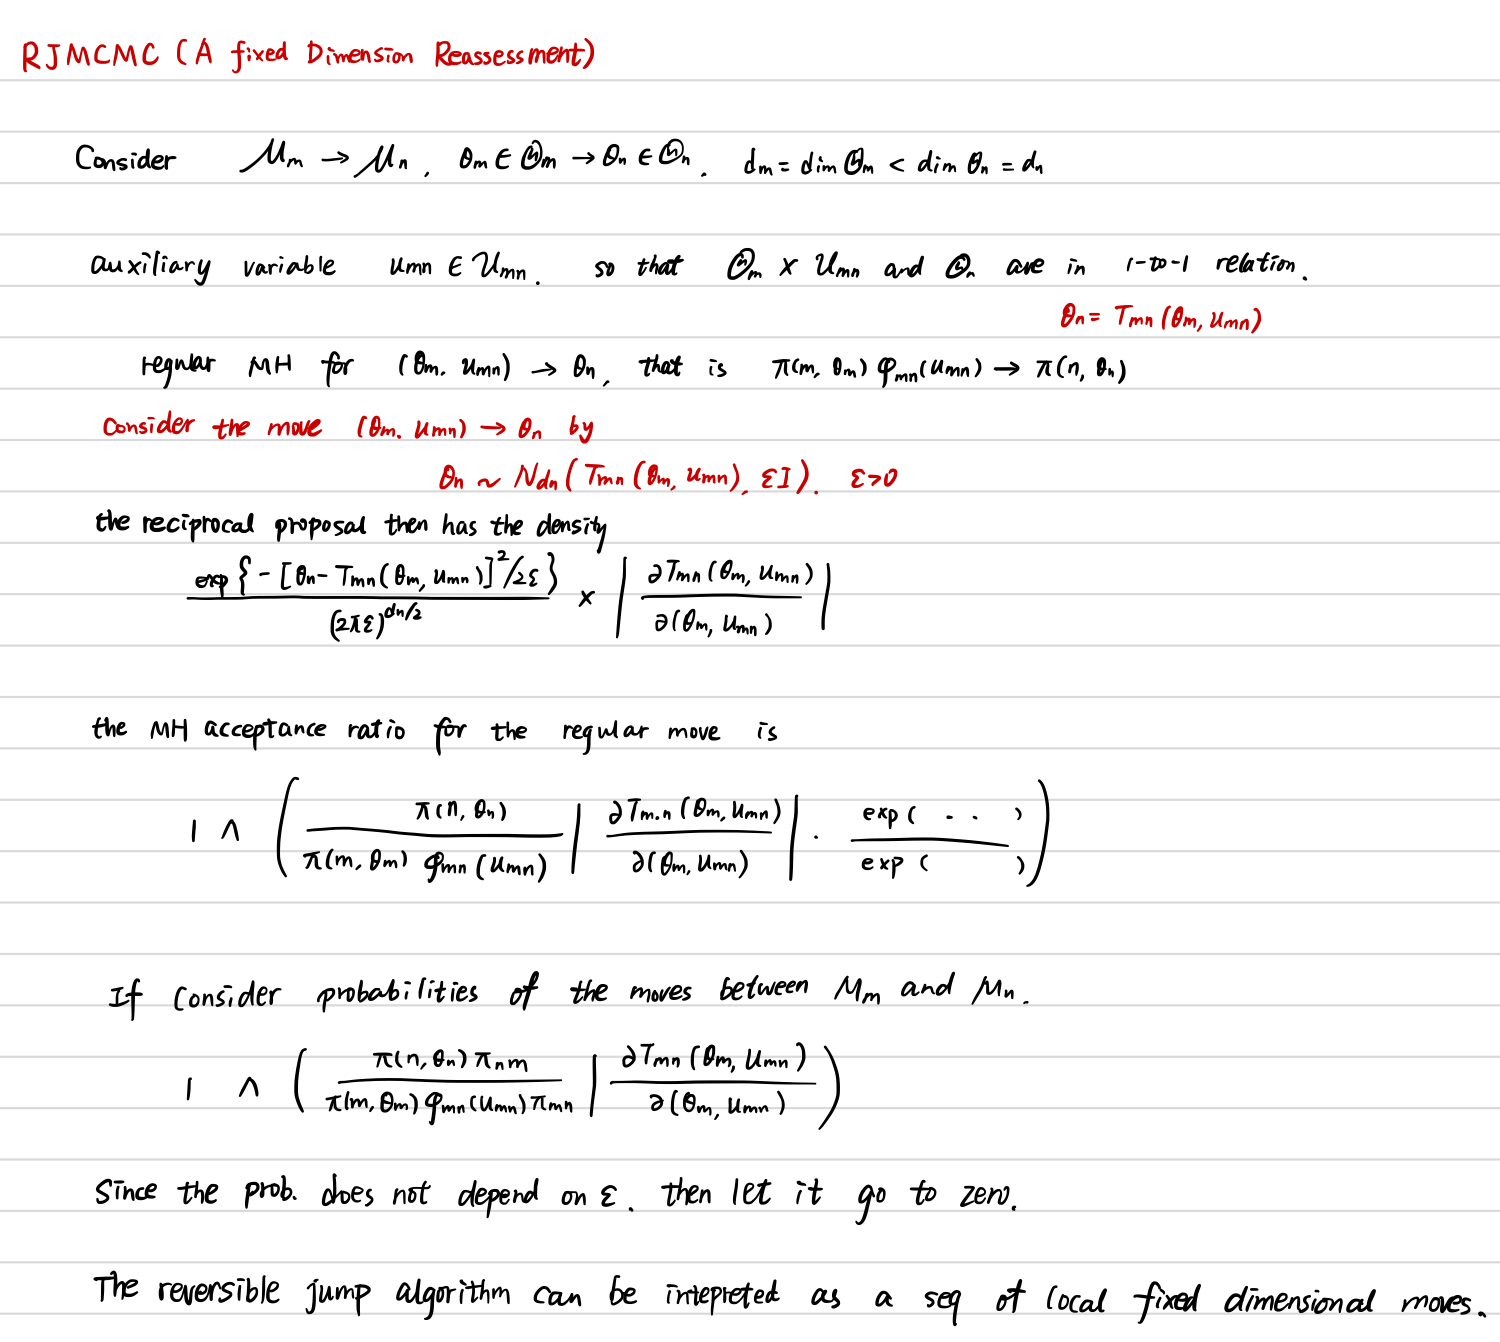 RJMCMC (A fixed Dimension Reassessment)
Consider 𝓜m → 𝓜n, θm ∈ Θm → θn ∈ Θn. dm = dim Θm < dim Θn = dn
auxiliary variable umn ∈ 𝒰mn. so that Θm × 𝒰mn and Θn are in 1-to-1 relation.
θn = Tmn (θm, umn)
regular MH for (θm, umn) → θn, that is π(m, θm) φmn(umn) → π(n, θn)
Consider the move (θm, umn) → θn by
θn ~ Ndn (Tmn (θm, umn), εI). ε>0
the reciprocal proposal then has the density
exp{-[θn - Tmn(θm, umn)]²/2ε} / (2πε)^{dn/2} × | ∂Tmn(θm, umn) / ∂(θm, umn) |
the MH acceptance ratio for the regular move is
1 ∧ ( π(n, θn) / π(m, θm) φmn(umn) | ∂Tm.n(θm, umn) / ∂(θm, umn) | · exp( . . ) / exp( ) )
If consider probabilities of the moves between Mm and Mn.
1 ∧ ( π(n, θn) πnm / π(m, θm) φmn(umn) πmn | ∂Tmn(θm, umn) / ∂(θm, umn) )
Since the prob. does not depend on ε. then let it go to zero.
The reversible jump algorithm can be intepreted as a seq of local fixed dimensional moves.